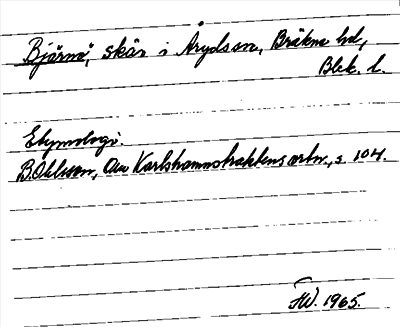 Bjärnö, skär i Arydsån, Bräkne hd,
Blek. l.
Etymologi.
B. Ohlsson, Om Karlshamnstraktens ortn., s. 104.
1965.